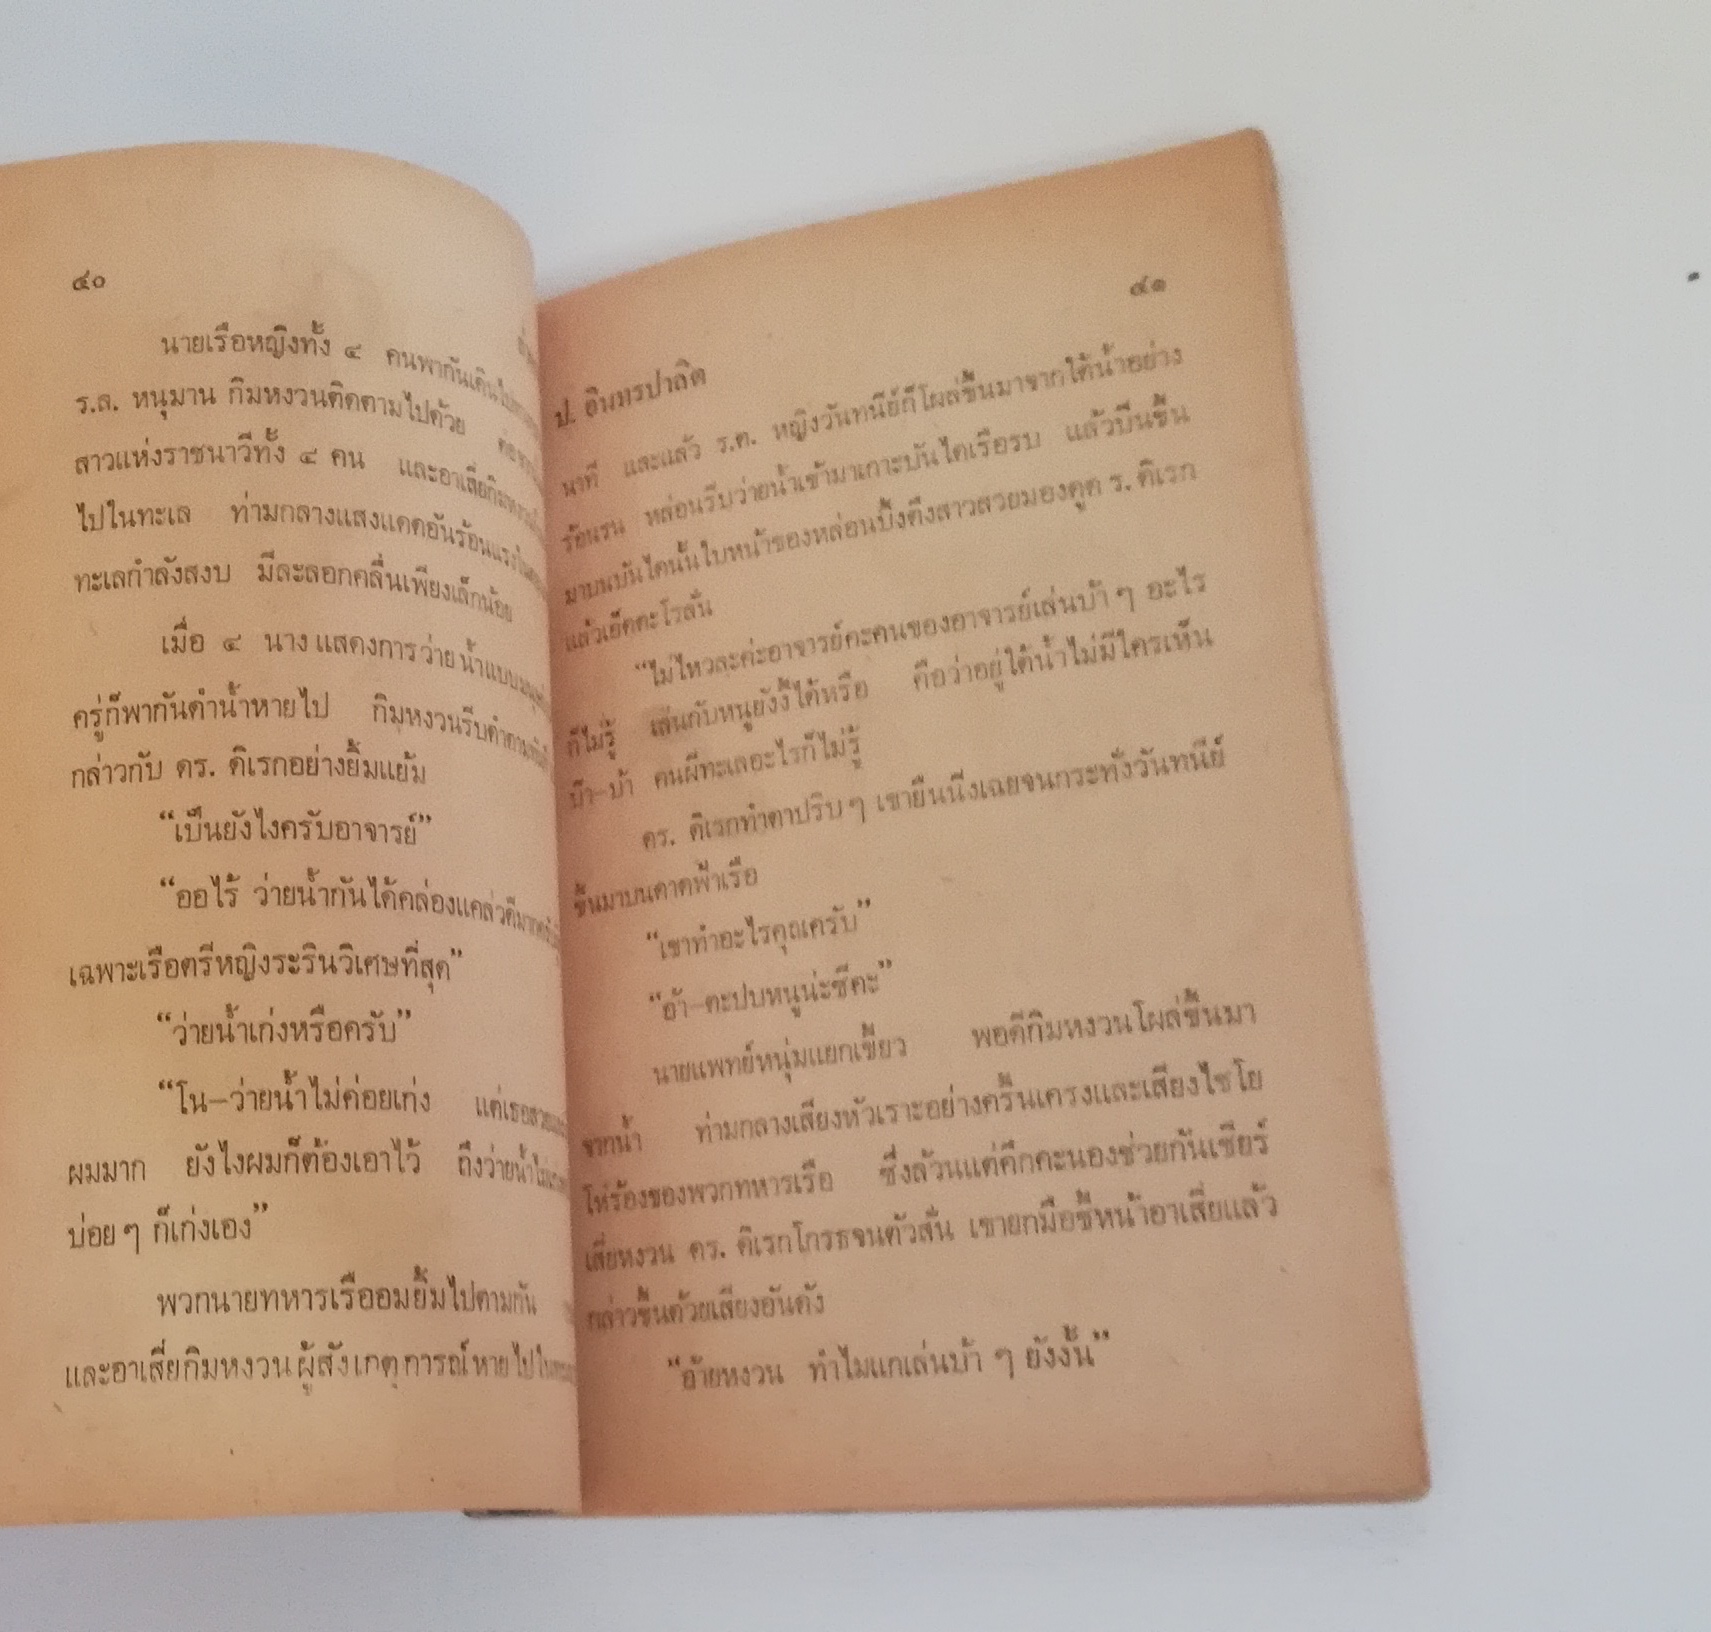 ๔๐
นายเรือหญิงทั้ง ๔ คนพากันเดิน
ร.ล. หนุมาน กิมหงวนติดตามไปด้วย ต่อจาก
สาวแห่งราชนาวีทั้ง ๔ คน และอาเสี่ยกิมหงวน
ไปในทะเล ท่ามกลางแสงแดดอันร้อนแรง
ทะเลกำลังสงบ มีละลอกคลื่นเพียงเล็กน้อย
เมื่อ ๔ นางแสดงการว่ายน้ำแบบ
ครู่ก็พากันดำน้ำหายไป กิมหงวนรีบดำตาม
กล่าวกับ ดร. ดิเรกอย่างยิ้มแย้ม
“เป็นยังไงครับอาจารย์”
“ออไร้ ว่ายน้ำกันได้คล่องแคล่วดีมาก
เฉพาะเรือตรีหญิงระรินวิเศษที่สุด”
“ว่ายน้ำเก่งหรือครับ”
“โน—ว่ายน้ำไม่ค่อยเก่ง แต่เธอสวย
ผมมาก ยังไงผมก็ต้องเอาไว้ ถึงว่ายน้ำ
บ่อยๆ ก็เก่งเอง”
พวกนายทหารเรืออมยิ้มไปตามกัน
และอาเสี่ยกิมหงวนผู้สังเกตุการณ์หายไป
๔๑
ป. อินทรปาลิต
นาที และแล้ว ร.ต. หญิงวันทนีย์ก็โผล่ขึ้นมาจากใต้น้ำอย่าง
ร้อนรน หล่อนรีบว่ายน้ำเข้ามาเกาะบันไดเรือรบ แล้วปีนขึ้น
มาบนบันไดนั้นใบหน้าของหล่อนบึ้งตึงสาวสวยมองดูด ร. ดิเรก
แล้วเอ็ดตะโรลั่น
“ไม่ไหวละค่ะอาจารย์คะคนของอาจารย์เล่นบ้าๆ อะไร
ก็ไม่รู้ เล่นกับหนูยังงี้ได้หรือ ถือว่าอยู่ใต้น้ำไม่มีใครเห็น
บ้า—บ้า คนผีทะเลอะไรก็ไม่รู้
ดร. ดิเรกทำตาปริบๆ เขายืนนิ่งเฉยจนกระทั่งวันทนีย์
ขึ้นมาบนดาดฟ้าเรือ
“เขาทำอะไรคุณครับ”
“อ้า—ตะปบหนูน่ะซีคะ”
นายแพทย์หนุ่มแยกเขี้ยว พอดีกิมหงวนโผล่ขึ้นมา
จากน้ำ ท่ามกลางเสียงหัวเราะอย่างครื้นเครงและเสียงไชโย
โห่ร้องของพวกทหารเรือ ซึ่งล้วนแต่คึกคะนองช่วยกันเชียร์
เสี่ยหงวน ดร. ดิเรกโกรธจนตัวสั่น เขายกมือชี้หน้าอาเสี่ยแล้ว
กล่าวขึ้นด้วยเสียงอันดัง
“อ้ายหงวน ทำไมแกเล่นบ้า ๆ ยังงั้น”